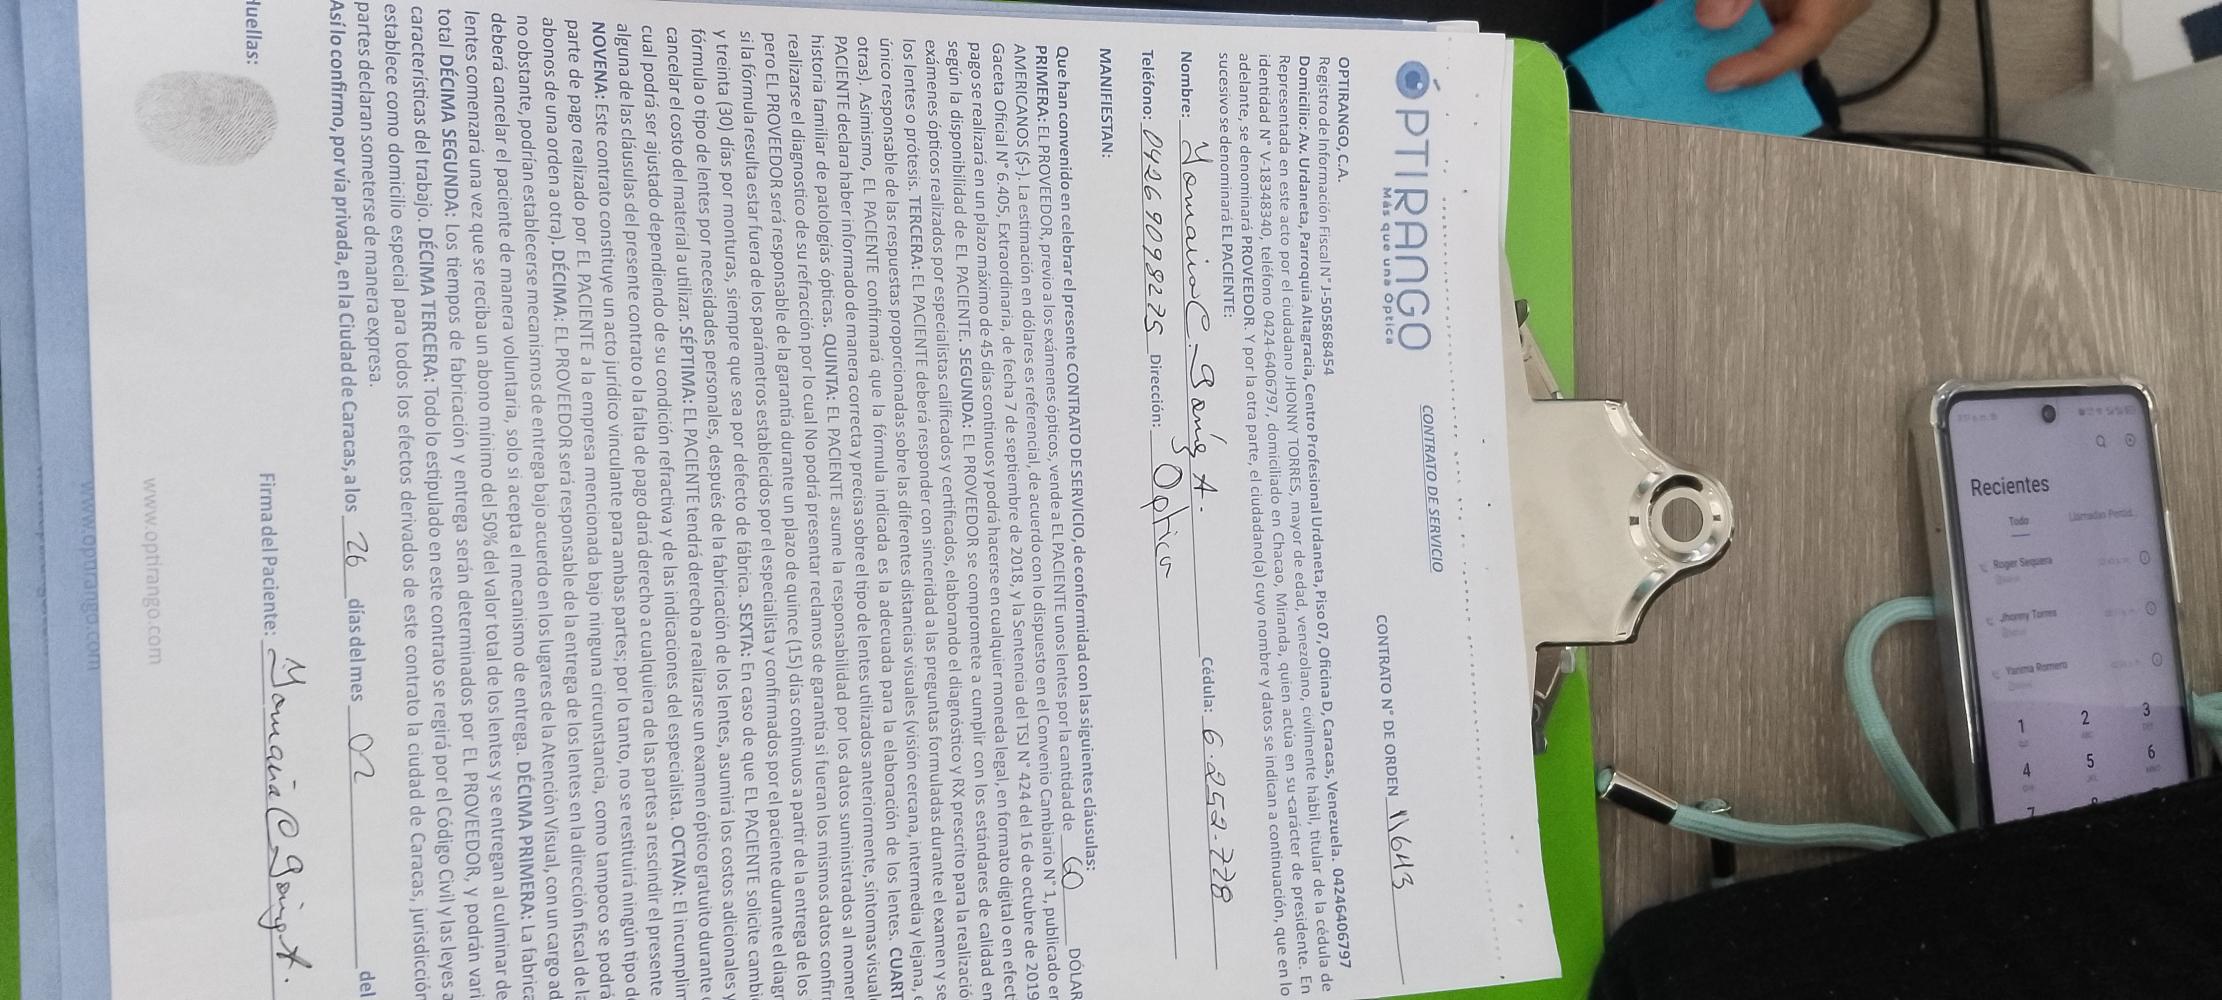 ÓPTIRANGO
Más que una Óptica
CONTRATO DE SERVICIO
CONTRATO N° DE ORDEN 11643
OPTIRANGO, C.A.
Registro de Información Fiscal N° J-505868454
Domicilio: Av. Urdaneta, Parroquia Altagracia, Centro Profesional Urdaneta, Piso 07, Oficina D, Caracas, Venezuela. 04246406797
Representada en este acto por el ciudadano JHONNY TORRES, mayor de edad, venezolano, civilmente hábil, titular de la cédula de
identidad N° V-18348340, teléfono 0424-6406797, domiciliado en Chacao, Miranda, quien actúa en su carácter de presidente. En
adelante, se denominará PROVEEDOR. Y por la otra parte, el ciudadano(a) cuyo nombre y datos se indican a continuación, que en lo
sucesivo se denominará EL PACIENTE:
Nombre: C. A. Cédula: 6.252.778
Teléfono: 04269098225 Dirección: Optica
MANIFIESTAN:
Que han convenido en celebrar el presente CONTRATO DE SERVICIO, de conformidad con las siguientes cláusulas:
PRIMERA: EL PROVEEDOR, previo a los exámenes ópticos, vende a EL PACIENTE unos lentes por la cantidad de 60 DÓLAR
AMERICANOS ($-). La estimación en dólares es referencial, de acuerdo con lo dispuesto en el Convenio Cambiario N° 1, publicado en
Gaceta Oficial N° 6.405, Extraordinaria, de fecha 7 de septiembre de 2018, y la Sentencia del TSJ N° 424 del 16 de octubre de 2019
pago se realizará en un plazo máximo de 45 días continuos y podrá hacerse en cualquier moneda legal, en formato digital o en efect
según la disponibilidad de EL PACIENTE. SEGUNDA: EL PROVEEDOR se compromete a cumplir con los estándares de calidad en
exámenes ópticos realizados por especialistas calificados y certificados, elaborando el diagnóstico y RX prescrito para la realizació
los lentes o prótesis. TERCERA: EL PACIENTE deberá responder con sinceridad a las preguntas formuladas durante el examen y se
único responsable de las respuestas proporcionadas sobre las diferentes distancias visuales (visión cercana, intermedia y lejana, e
otras). Asimismo, EL PACIENTE confirmará que la fórmula indicada es la adecuada para la elaboración de los lentes. CUART
PACIENTE declara haber informado de manera correcta y precisa sobre el tipo de lentes utilizados anteriormente, síntomas visual
historia familiar de patologías ópticas. QUINTA: EL PACIENTE asume la responsabilidad por los datos suministrados al momen
realizarse el diagnostico de su refracción por lo cual No podrá presentar reclamos de garantía si fueran los mismos datos confirm
pero EL PROVEEDOR será responsable de la garantía durante un plazo de quince (15) días continuos a partir de la entrega de los
si la fórmula resulta estar fuera de los parámetros establecidos por el especialista y confirmados por el paciente durante el diagn
y treinta (30) días por monturas, siempre que sea por defecto de fábrica. SEXTA: En caso de que EL PACIENTE solicite cambi
fórmula o tipo de lentes por necesidades personales, después de la fabricación de los lentes, asumirá los costos adicionales y
cancelar el costo del material a utilizar. SÉPTIMA: EL PACIENTE tendrá derecho a realizarse un examen óptico gratuito durante
cual podrá ser ajustado dependiendo de su condición refractiva y de las indicaciones del especialista. OCTAVA: El incumplim
alguna de las cláusulas del presente contrato o la falta de pago dará derecho a cualquiera de las partes a rescindir el presente
NOVENA: Este contrato constituye un acto jurídico vinculante para ambas partes; por lo tanto, no se restituirá ningún tipo d
parte de pago realizado por EL PACIENTE a la empresa mencionada bajo ninguna circunstancia, como tampoco se podrá
abonos de una orden a otra). DÉCIMA: EL PROVEEDOR será responsable de la entrega de los lentes en la dirección fiscal de la
no obstante, podrían establecerse mecanismos de entrega bajo acuerdo en los lugares de la Atención Visual, con un cargo ad
deberá cancelar el paciente de manera voluntaria, solo si acepta el mecanismo de entrega. DÉCIMA PRIMERA: La fabrica
lentes comenzará una vez que se reciba un abono mínimo del 50% del valor total de los lentes y se entregan al culminar de
total DÉCIMA SEGUNDA: Los tiempos de fabricación y entrega serán determinados por EL PROVEEDOR, y podrán vari
características del trabajo. DÉCIMA TERCERA: Todo lo estipulado en este contrato se regirá por el Código Civil y las leyes a
establece como domicilio especial para todos los efectos derivados de este contrato la ciudad de Caracas, jurisdicción
partes declaran someterse de manera expresa.
Así lo confirmo, por vía privada, en la Ciudad de Caracas, a los 26 días del mes 02 del
Huellas:
Firma del Paciente:
www.optirango.com
www.optirango.com
Recientes
Todo
Llamadas Perdid
Roger Sequera
Jhonny Torres
Yanima Romero
1 2 3
4 5 6
7